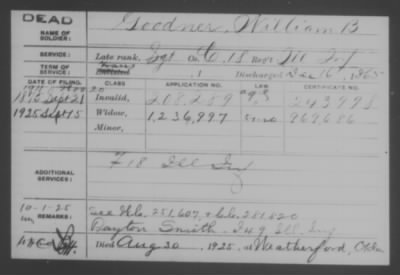 DEAD
NAME OF SOLDIER: Goodner, William B
SERVICE: Late rank, Sgt Co. C, 18 Reg't Ill Inf
TERM OF SERVICE: Enlisted , 1 Discharged Dec 16, 1865
DATE OF FILING. CLASS. APPLICATION NO. LAW. CERTIFICATE NO.
1876 Sept 21 Invalid, 208,259 243993
1925 Sept 15 Widow, 1,236,997 969686
Minor,
ADDITIONAL SERVICES: F 18 Ill Inf
10-1-25
REMARKS: See Ills. 251,607, & Ctf. 281520
Dayton Smith. I 49 Ill. Inf
Died Aug 30, 1925, at Weatherford, Okla